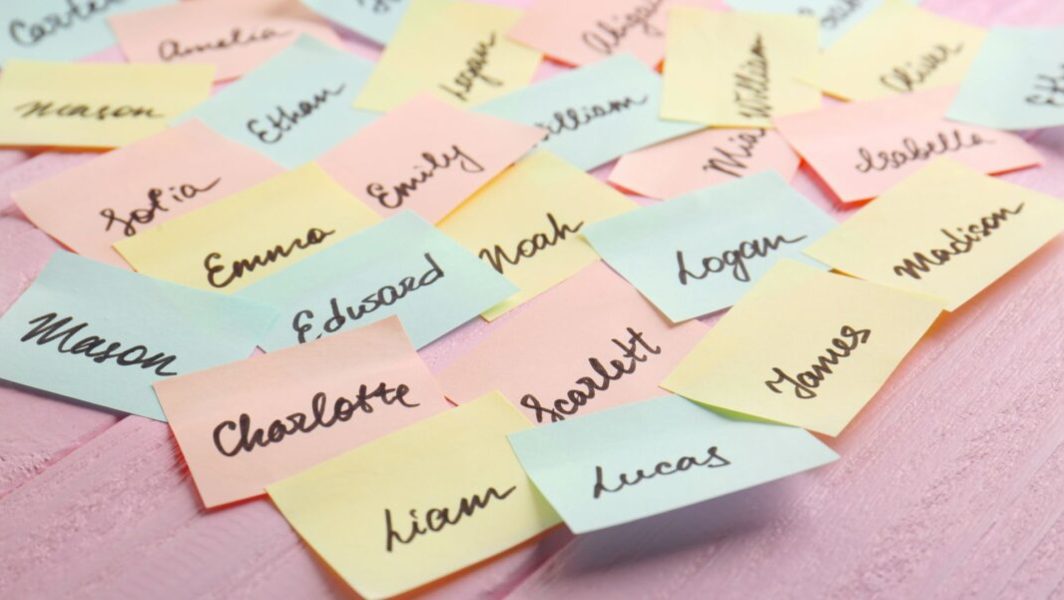 Amelia
Logan
William
Oliver
Mason
Ethan
William
Mia
Isabella
Sofia
Emily
Emma
Noah
Logan
Madison
Edward
Mason
Scarlett
James
Charlotte
Lucas
Liam